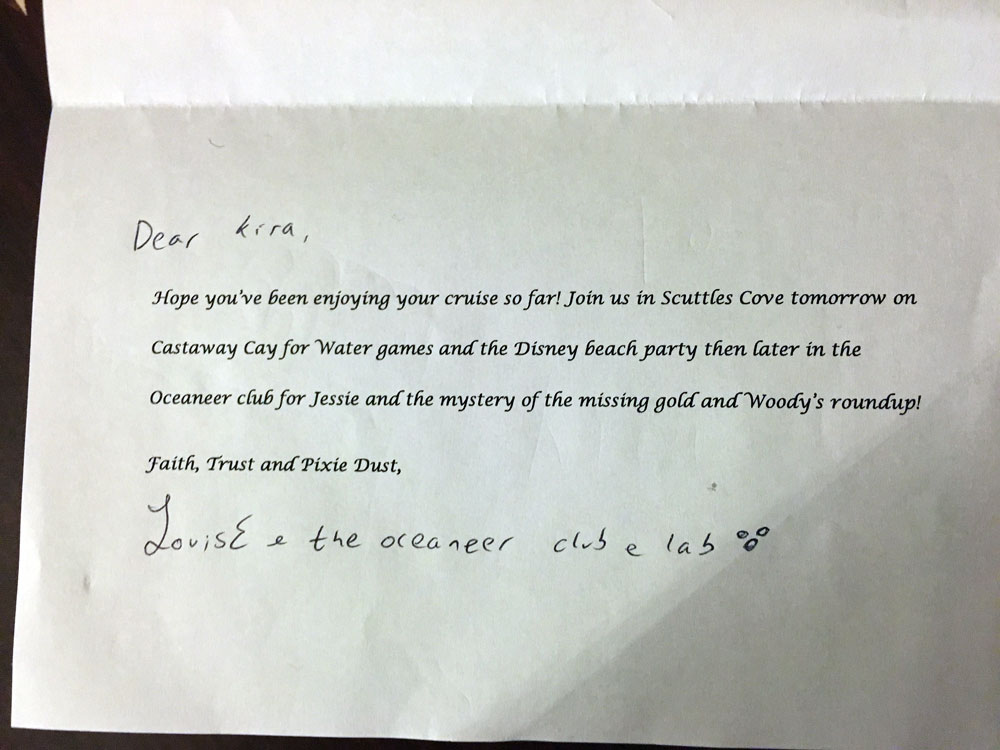 Dear kira,
Hope you've been enjoying your cruise so far! Join us in Scuttles Cove tomorrow on
Castaway Cay for Water games and the Disney beach party then later in the
Oceaneer club for Jessie and the mystery of the missing gold and Woody's roundup!
Faith, Trust and Pixie Dust,
LouisE e the oceaneer club e lab